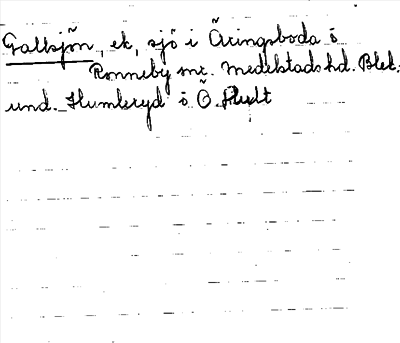 Galtsjön, ek, sjö i Äringsboda ö
Ronneby sn. Medelstads hd. Blek.
und. Humleryd ö Ö. Hult